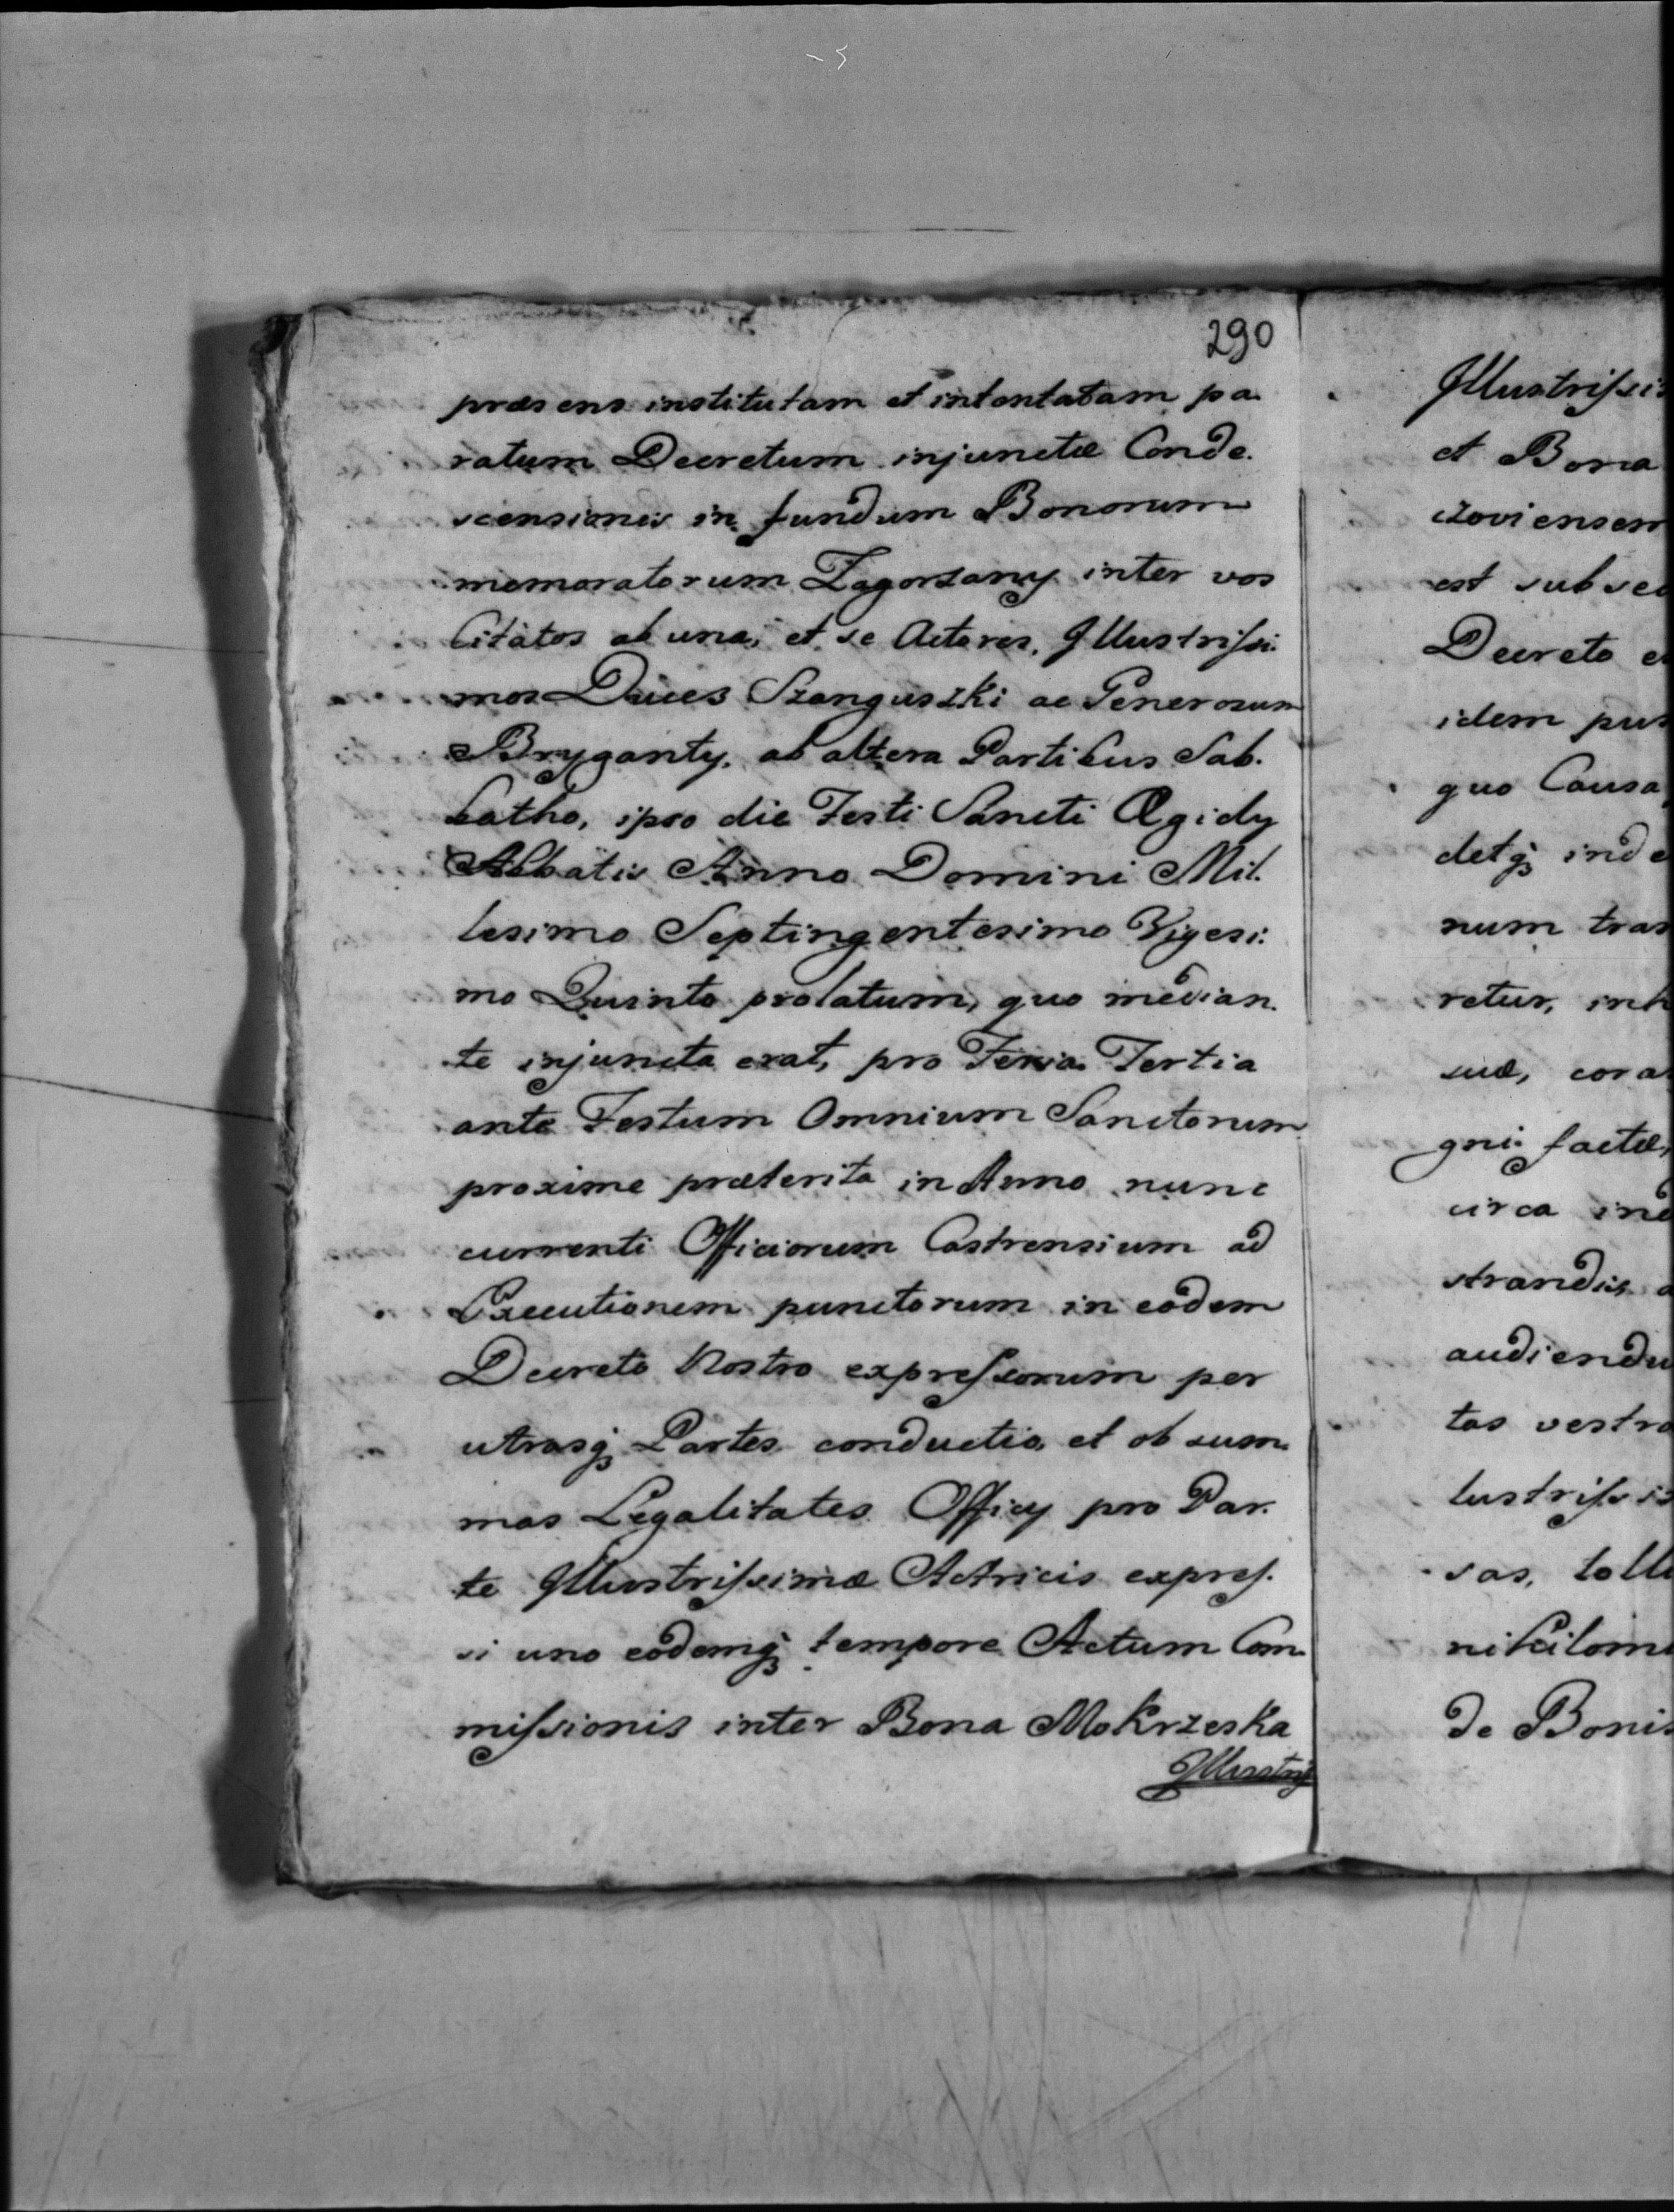 290
præsens institutam et intentatam pa-
ratum Decretum injunctæ Conde-
scensionis in fundum Bonorum
memoratorum Zagorzany inter vos
Citatos ab una, et se Actores, Illustrissi-
mos Duces Szanguszki ac Generosum
Bryganty, ab altera Partibus Sab-
batho, ipso die Festi Sancti Ægidy
Abbatis Anno Domini Mil-
lesimo Septingentesimo Vigesi-
mo Quinto prolatum, quo median-
te injuncta erat, pro Feria Tertia
ante Festum Omnium Sanctorum
proxime præterita in Anno nunc
currenti Officiorum Castrensium ad
Executionem punctorum in eodem
Decreto Nostro expressorum per
utrasq3 Partes conductio, et ob sum-
mas Legalitates Officy pro Par-
te Illustrissimæ Actricis expres-
si uno eodemq3 tempore Actum Com-
missionis inter Bona Mokrzeska
Illustris
Illustrissi
et Bona
czoviensem
est subse
Decreto e
idem pus
quo Causa
detq3 inde
num tras
retur, inh
suæ, cora
gni factæ,
circa ind
strandis,
audiendu
tas vestra
lustrissi
sas, tolli
nihilomi
de Bonis